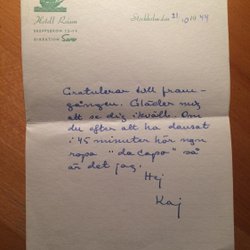 Hotell Reisen
SKEPPSBRON 12-14
DIREKTION Sarp
Stockholm den 21/10 1944
Gratulerar till fram-
gången. Gläder mig
att se dig ikväll. Om
du efter att ha dansat
i 45 minuter hör ngn
ropa "da capo" så
är det jag.
Hej
Kaj